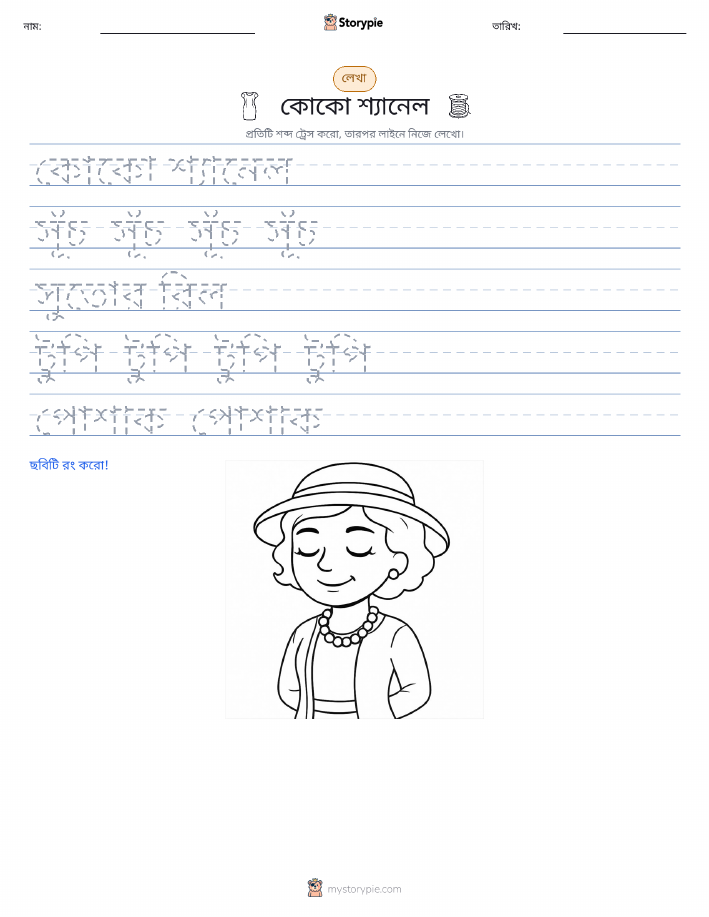 নাম: Storypie তারিখ:
লেখা
কোকো শ্যানেল
প্রতিটি শব্দ ট্রেস করো, তারপর লাইনে নিজে লেখো।
কোকো শ্যানেল
সুঁচ সুঁচ সুঁচ সুঁচ
সুতোর রিল
টুপি টুপি টুপি টুপি
পোশাক পোশাক
ছবিটি রং করো!
mystorypie.com